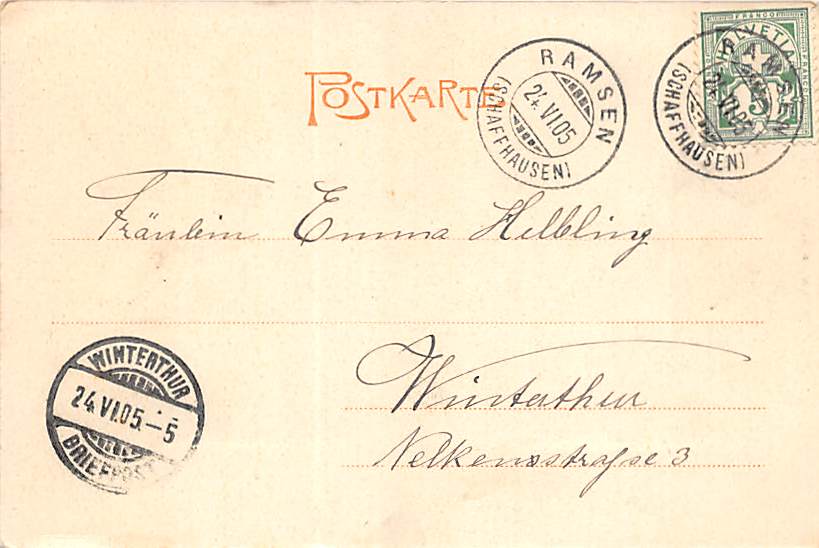 POSTKARTE
RAMSEN
24.VI.05
(SCHAFFHAUSEN)
HELVETIA
FRANCO
5
RAMSEN
24.VI.05
(SCHAFFHAUSEN)
Fräulein Emma Helbling
Winterthur
Nelkensstrasse 3
WINTERTHUR
24.VI.05.-5
BRIEFPOST